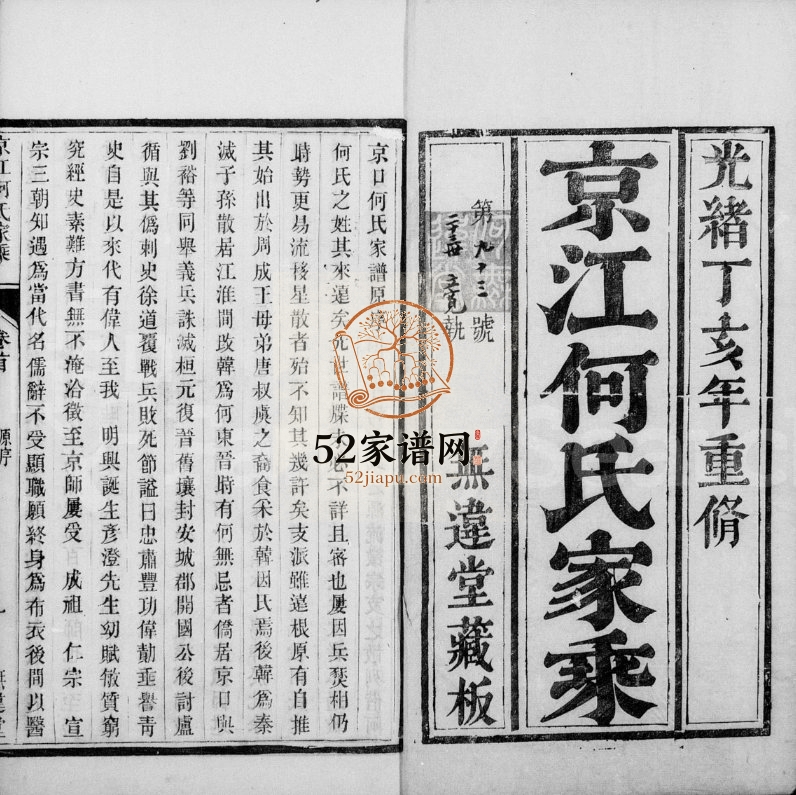 光緒丁亥年重脩
京江何氏家乘
第九十三號
二十三世 立寬執
無違堂藏板
京口何氏家譜原序
何氏之姓其來遠矣先世譜牒不詳且審也屢因兵燹相仍
時勢更易流移星散者殆不知其幾許矣支派雖遠根原有自推
其始出於周成王母弟唐叔虞之裔食采於韓因氏焉後韓為秦
滅子孫散居江淮間改韓為何東晉時有何無忌者僑居京口與
劉裕等同舉義兵誅滅桓元復晉舊壤封安城郡開國公後討盧
循與其僞刺史徐道覆戰兵敗死節謚曰忠肅豐功偉勣垂譽青
史自是以來代有偉人至我 明興誕生彥澄先生幼賦敏質窮
究經史素難方書無不淹洽徵至京師屢受 成祖 仁宗 宣
宗三朝知遇為當代名儒辭不受顯職願終身為布衣後間以醫
京江何氏家乘 卷首 原序 一 無違堂
52家谱网
52jiapu.com